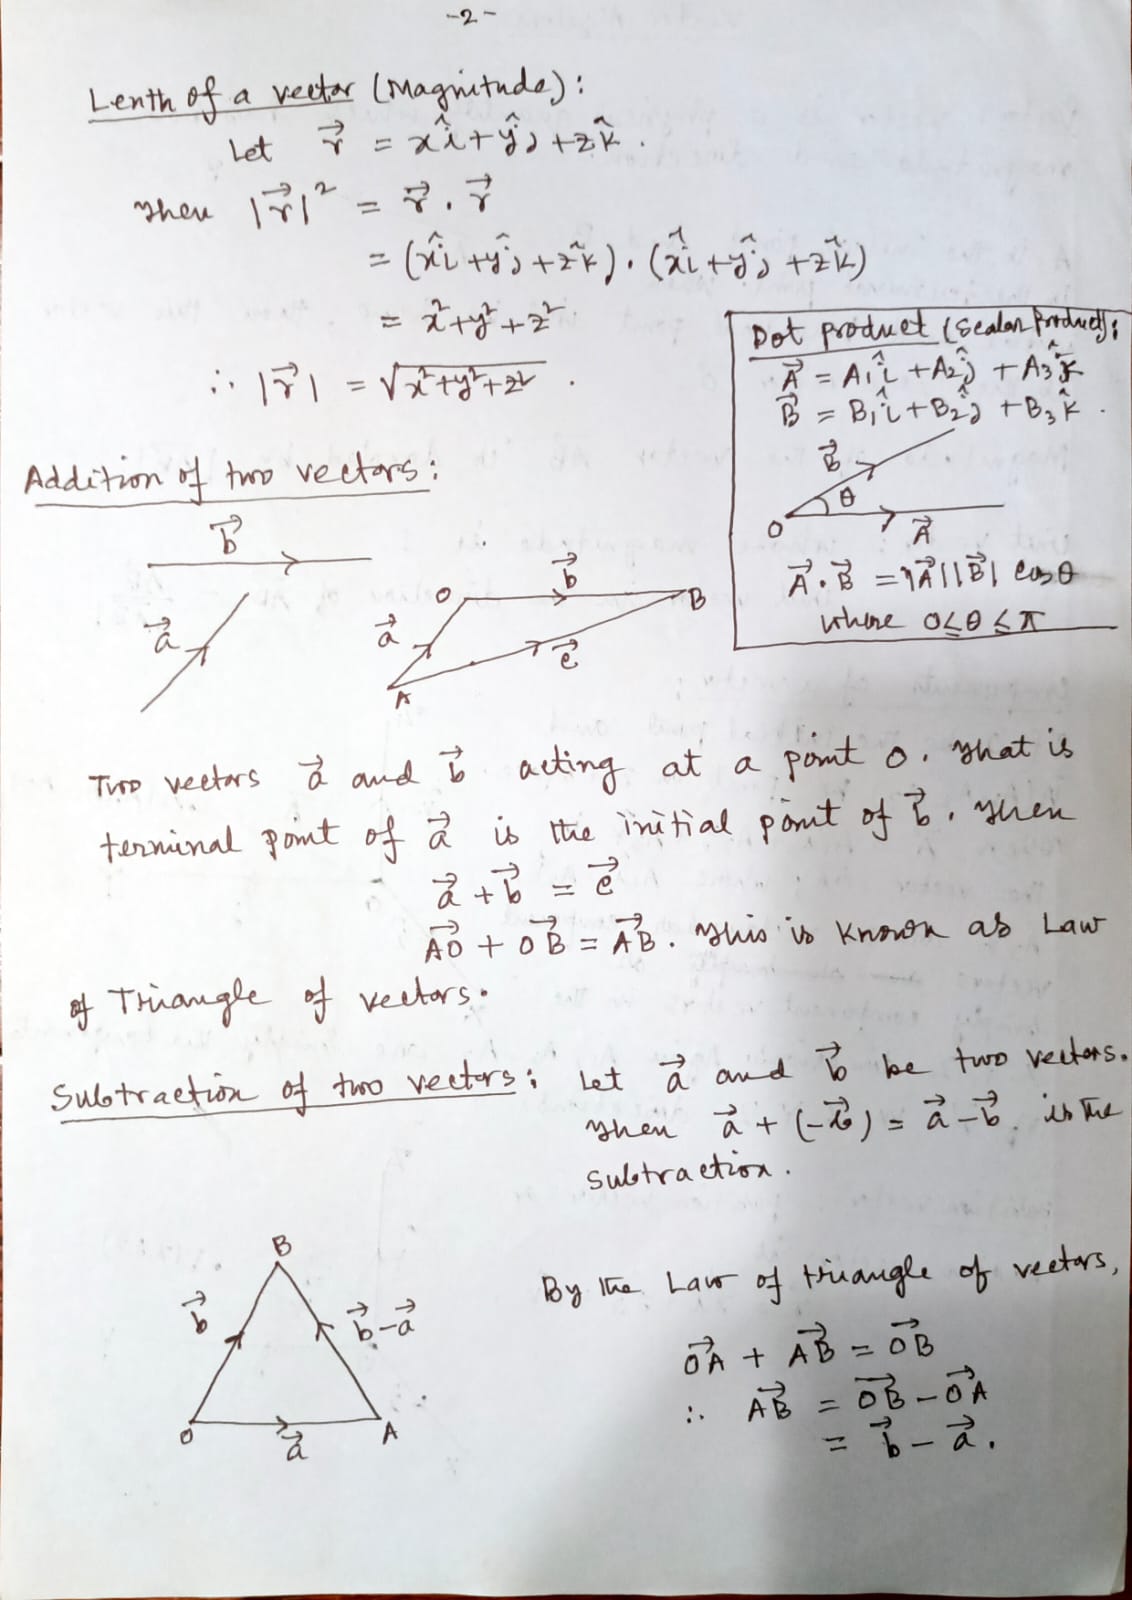 -2-
Lenth of a vector (Magnitude):
Let r⃗ = xî + yĵ + zk̂.
Then |r⃗|² = r⃗ . r⃗
= (xî + yĵ + zk̂) . (xî + yĵ + zk̂)
= x² + y² + z²
∴ |r⃗| = √x² + y² + z² .
Dot product (Scalar Product):
A⃗ = A₁î + A₂ĵ + A₃k̂
B⃗ = B₁î + B₂ĵ + B₃k̂ .
B⃗
θ
O
A⃗
A⃗ . B⃗ = |A⃗||B⃗| cosθ
where 0 ≤ θ ≤ π
Addition of two vectors:
b⃗
a⃗
O b⃗ B
a⃗
c⃗
A
Two vectors a⃗ and b⃗ acting at a point O. That is
terminal point of a⃗ is the initial point of b⃗. Then
a⃗ + b⃗ = c⃗
AO⃗ + OB⃗ = AB⃗. This is known as Law
of Triangle of vectors.
Subtraction of two vectors: Let a⃗ and b⃗ be two vectors.
Then a⃗ + (-b⃗) = a⃗ - b⃗ is the
subtraction.
B
b⃗ b⃗-a⃗
O a⃗ A
By the Law of triangle of vectors,
OA⃗ + AB⃗ = OB⃗
∴ AB⃗ = OB⃗ - OA⃗
= b⃗ - a⃗.